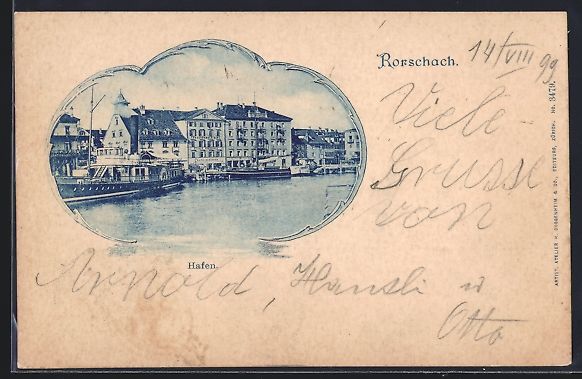 Rorschach. 14/VIII 99
Viele
Grüsse
von
Hafen.
Arnold, Hansli u
Otto
ARTIST. ATELIER H. GUGGENHEIM & CO., EDITEURS, ZÜRICH. No. 3470.